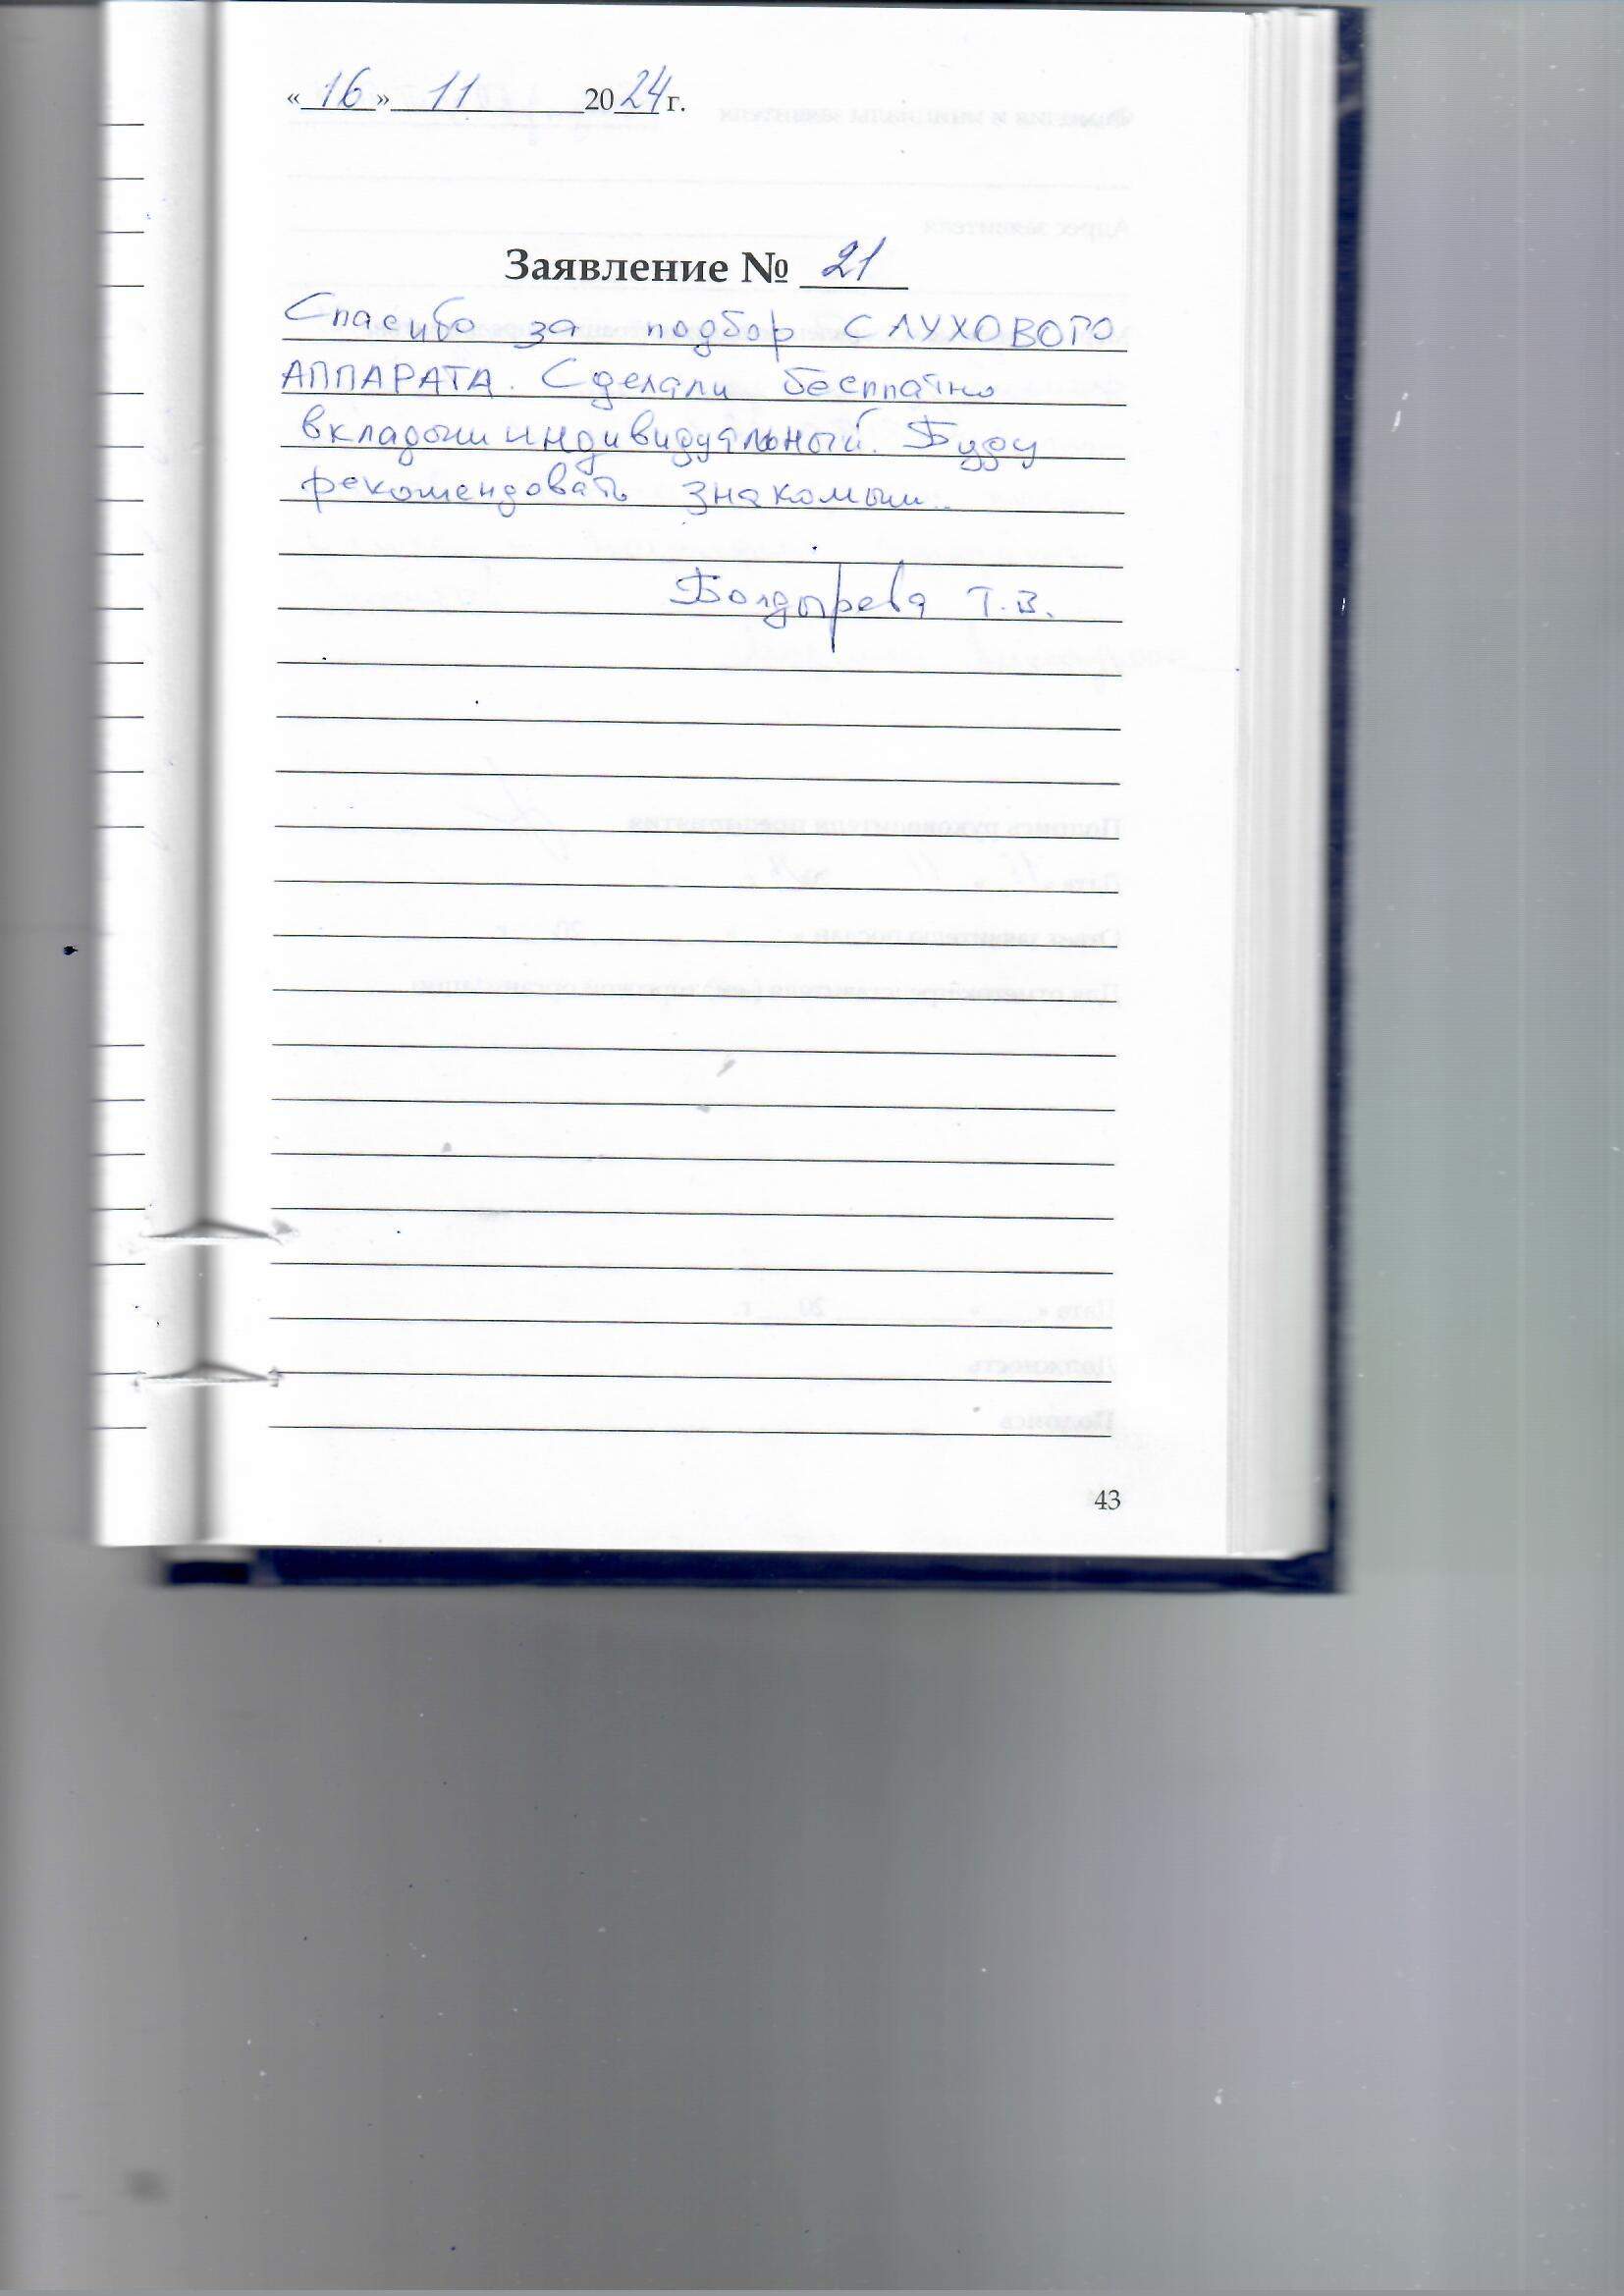 «16» 11 2024 г.
Заявление № 21
Спасибо за подбор СЛУХОВОГО
АППАРАТА. Сделали бесплатно
вкладыш индивидуальный. Буду
рекомендовать знакомым..
Болдырева Т.В.
43